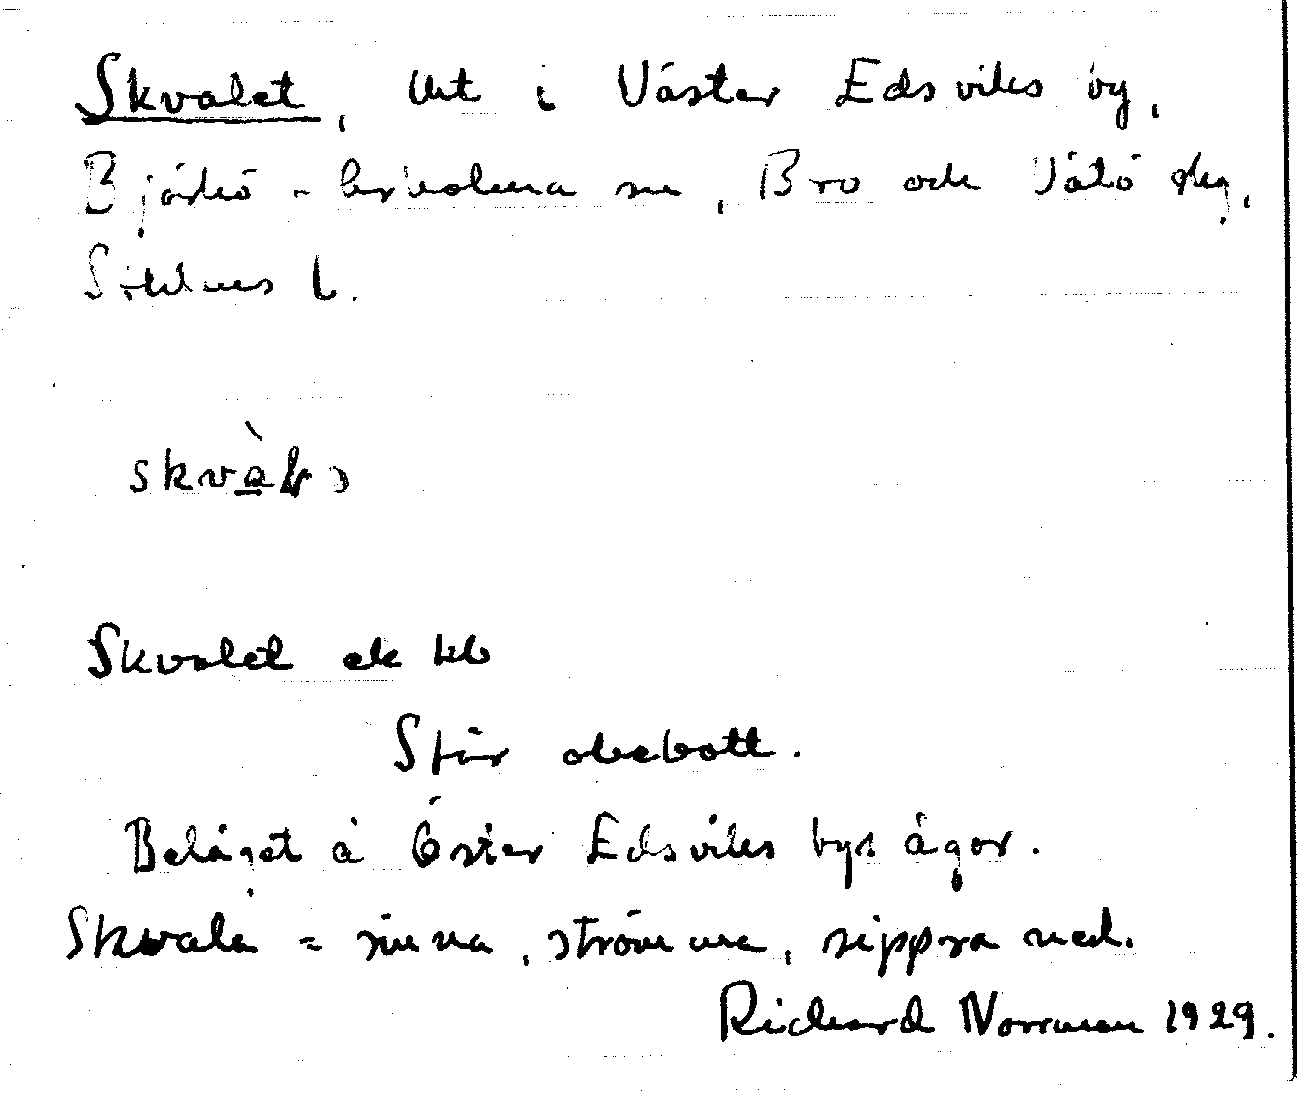 Skvalet, lht i Väster Edsviks by,
Björkö-Arholma sn, Bro och Vätö skg,
Sthlms l.
skvàlə
Skvalet ek kb
Står obebott.
Beläget å Öster Edsviks bys ägor.
Skvala = rinna, strömma, sippra ned.
Richard Norrman 1929.